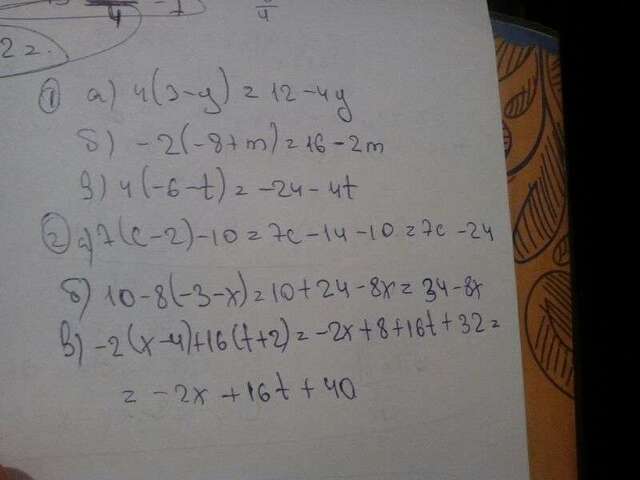 4
- 1
4
2 2.
① а) 4(3-y) = 12 - 4y
б) -2(-8+m) = 16 - 2m
в) 4(-6-t) = -24 - 4t
② а) 7(c-2) - 10 = 7c - 14 - 10 = 7c - 24
б) 10 - 8(-3-x) = 10 + 24 - 8x = 34 - 8x
в) -2(x-4) + 16(t+2) = -2x + 8 + 16t + 32 =
= -2x + 16t + 40